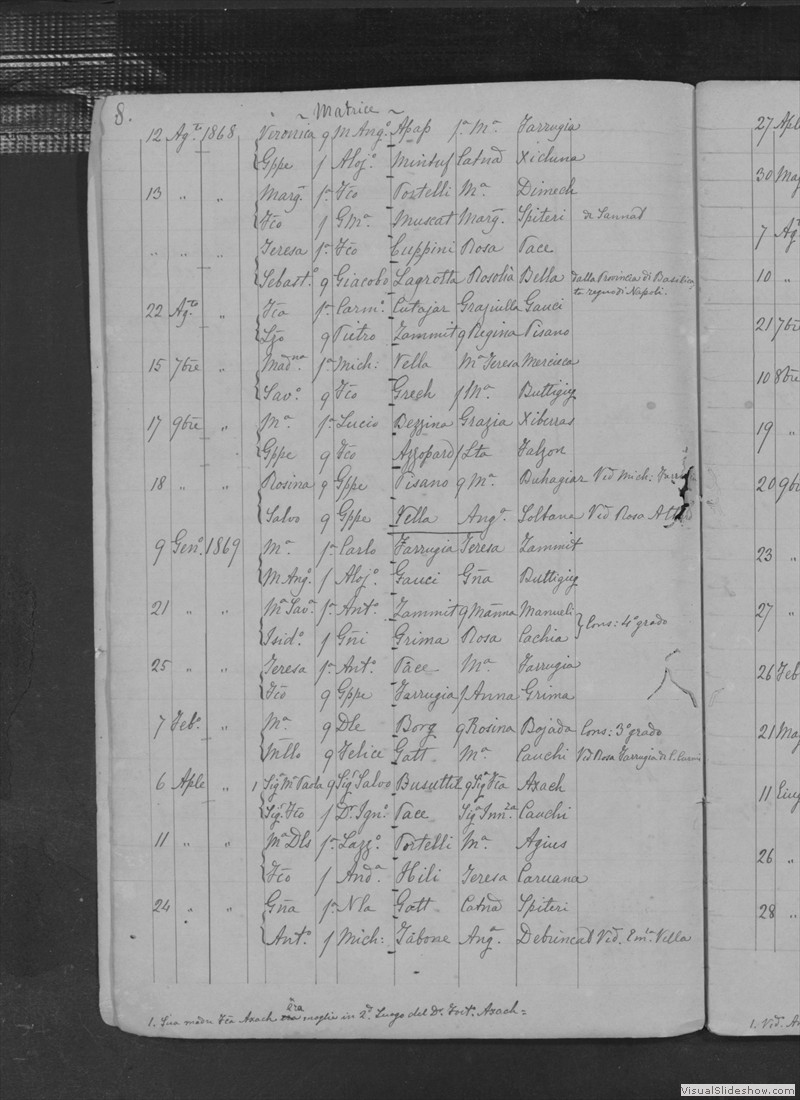 8.
~ Matrice ~
12 Agto 1868 Veronica q M Ango Apap fa Ma Farrugia
Gppe f Alojo Mintuf Catna Xicluna
13 " " Marga fa Fco Portelli Ma Dimech
Fco f GMa Muscat Marga Spiteri di Sannat
" " " Teresa fa Fco Cuppini Rosa Pace
Sebasto q Giacobo Lagrotta Rosolia Bella dalla Provincia di Basilica
ta regno di Napoli.
22 Agto " Fca fa Carmo Cutajar Graziella Gauci
Lzo q Pietro Zammit q Regina Pisano
15 7bre " Madna fa Mich: Vella Ma Teresa Mercieca
Savo q Fco Grech f Ma Buttigieg
17 9bre " Ma fa Lucio Bezzina Grazia Xiberras
Gppe q Fco Azzopard f Lta Falzon
18 " " Rosina q Gppe Pisano q Ma Buhagiar Vid Mich:
Salvo q Gppe Vella Anga Soltana Vid Rosa
9 Geno. 1869 Ma fa Carlo Farrugia Teresa Zammit
M Ango f Alojo Gauci Gna Buttigieg
21 " " Ma Sava fa Anto Zammit q Manna Manueli
Cons: 4o grado
Isido f Gni Grima Rosa Cachia
25 " " Teresa fa Anto Pace Ma Farrugia
Fco q Gppe Farrugia f Anna Grima
7 Febo. " Ma q Dle Borg q Rosina Bojada Cons: 3o grado
Mllo q Felice Gatt Ma Cauchi Vid Rosa Farrugia di
6 Aple " 1 Siga Ma Paola q Sigr Salvo Busuttil q Siga Fca Axach
Sigr Fco f Dr Igno Pace Siga Innza Cauchi
11 " " Ma Dls fa Lazzo Portelli Ma Agius
Fco f Anda Hili Teresa Caruana
24 " " Gna fa Nla Gatt Catna Spiteri
Anto f Mich: Tabone Anga Debrincat Vid. Emla Vella
1. Sua madre Fca Axach era moglie in 2o Luogo del Dr Fort. Axach =
27 Aple
30 Mag
7 Ago
10 "
21 7bre
10 8bre
19 "
20 9bre
23 "
27 "
26 Feb
21 Mag
11 Giug
26 "
28 "
1. Vid. A
VisualSlideshow.com